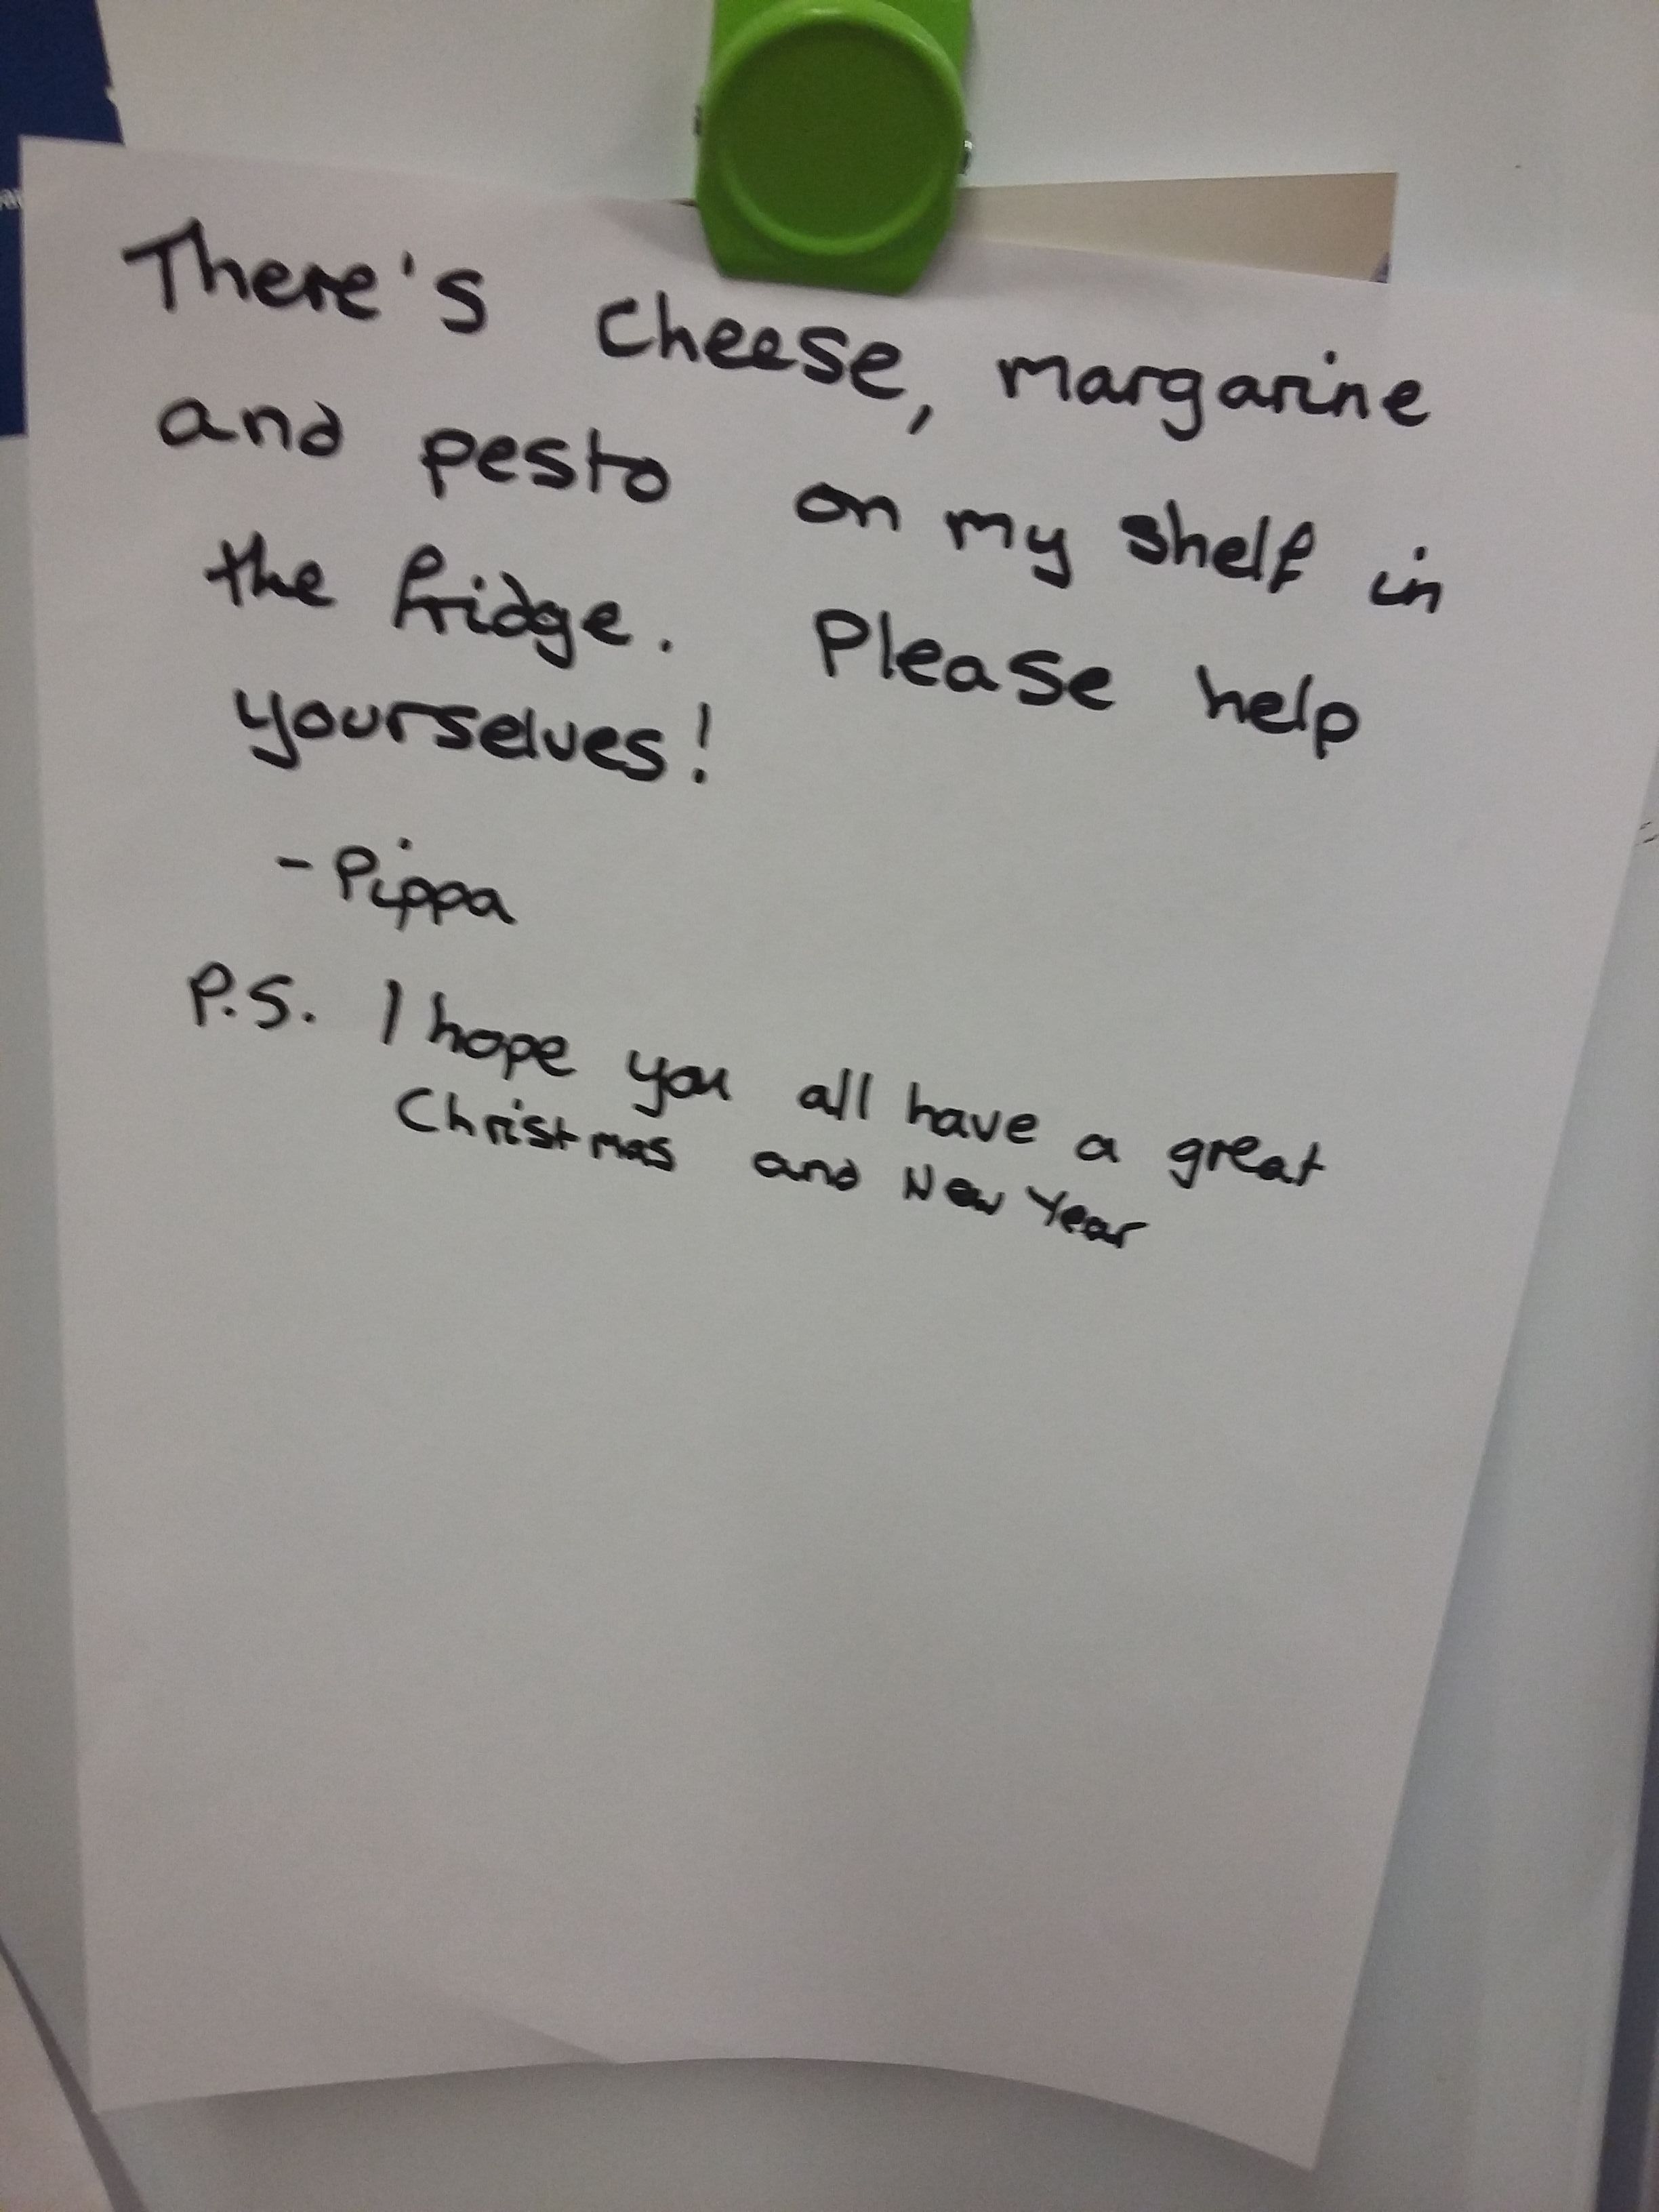 There's cheese, margarine
and pesto on my shelf in
the fridge. Please help
yourselves!
- Pippa
P.S. I hope you all have a great
Christmas and New Year